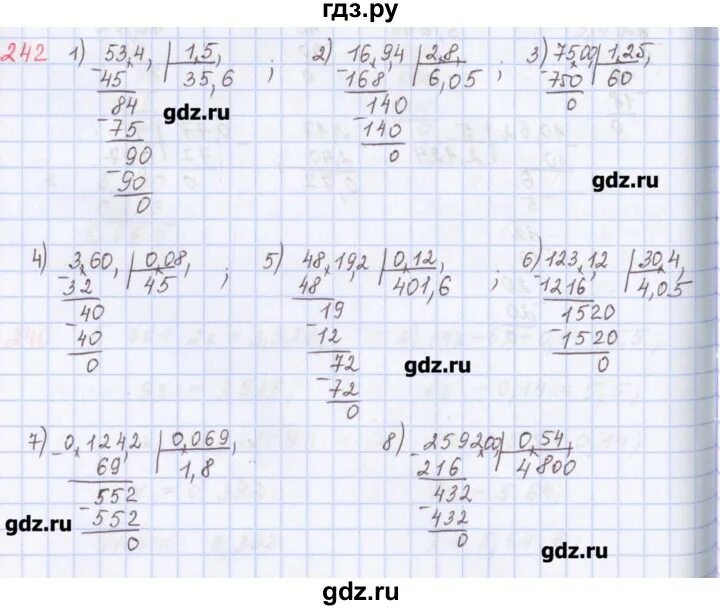 гдз.ру
242 1) 53,4, | 1,5, ; 2) 16,94 | 2,8, ; 3) 7500, | 1,25,
-45 35,6 -168 6,05 -750 60
84 140 0
-75 -140
90 0
-90
0
gdz.ru
gdz.ru
4) 3,60, | 0,08, ; 5) 48,19,2 | 0,12, ; 6) 123,12 | 30,4,
-32 45 -48 401,6 -1216 4,05
40 19 1520
-40 -12 -1520
0 72 0
-72
0
gdz.ru
7) 0,1242, | 0,069, 8) 259200, | 0,54,
-69 1,8 -216 4800
552 432
-552 -432
0 0
gdz.ru
gdz.ru
gdz.ru